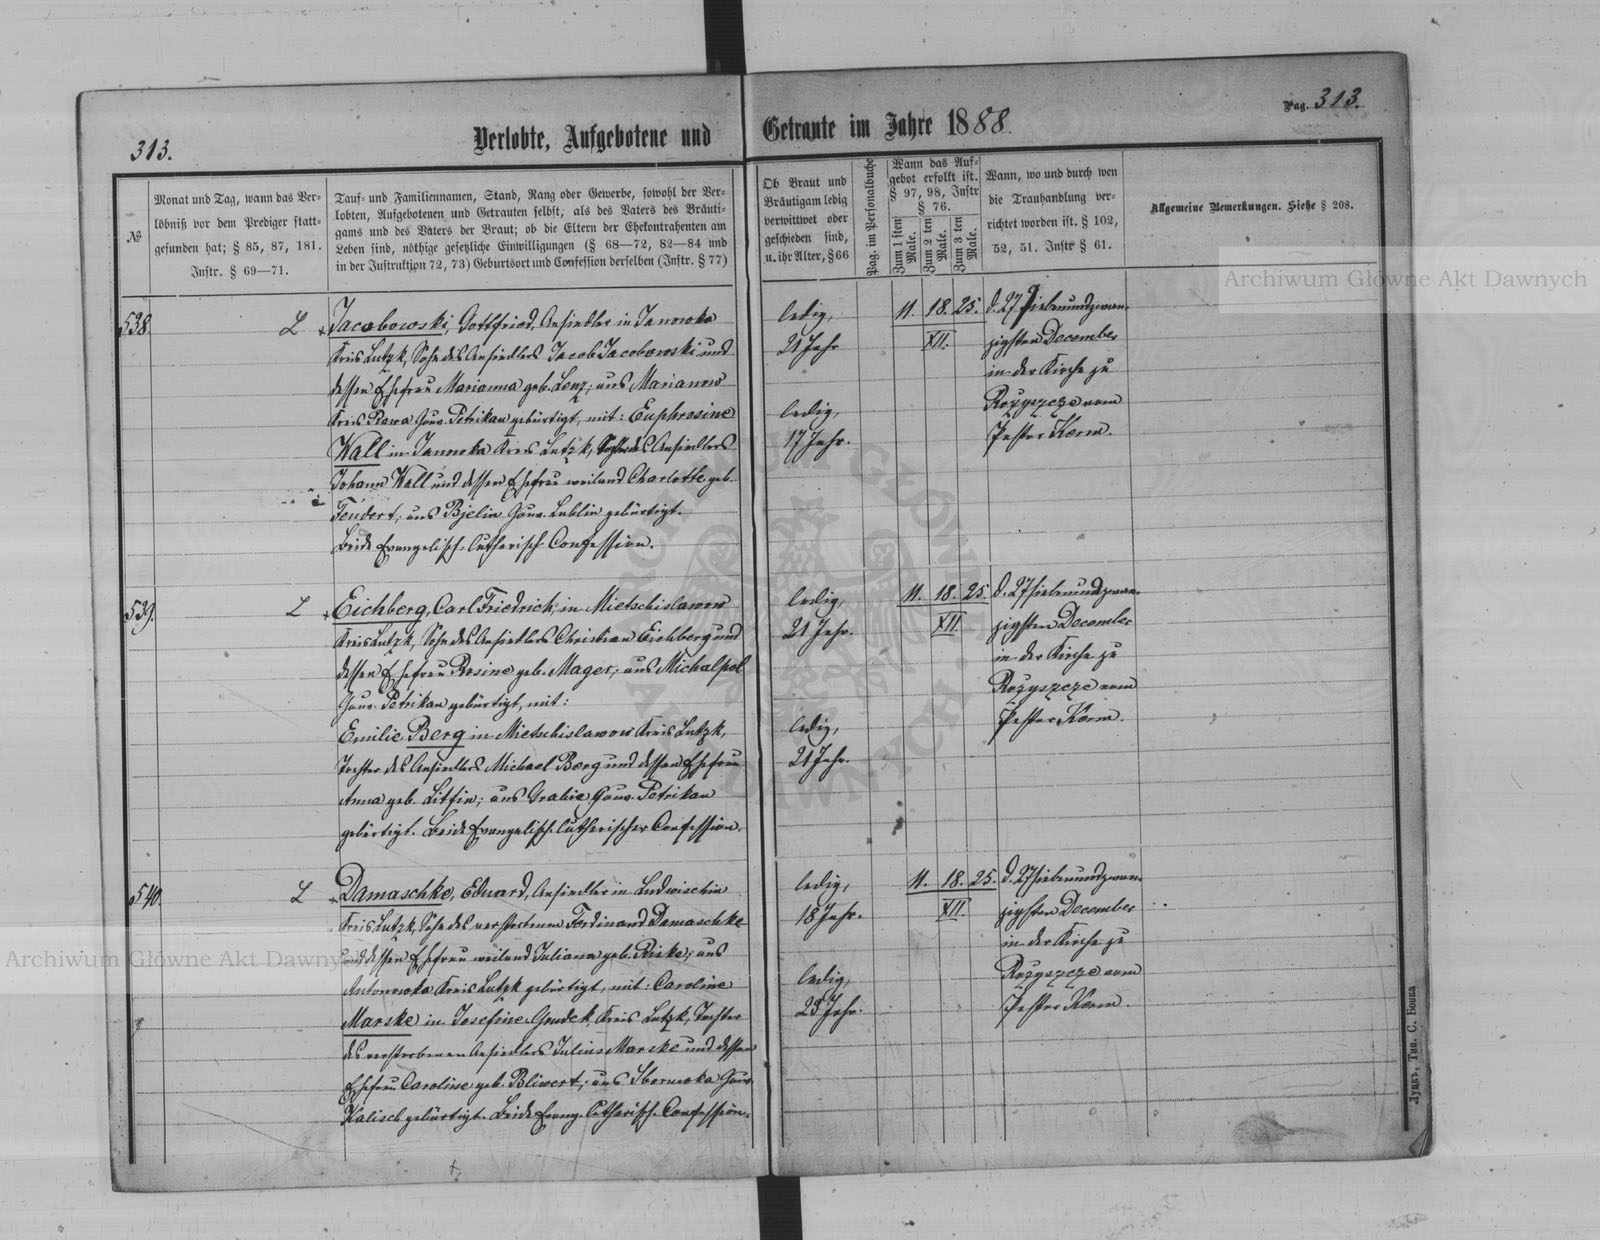 313.
Verlobte, Aufgebotene und
Getraute im Jahre 1888.
Pag. 313.
№
Monat und Tag, wann das Ver-
löbniß vor dem Prediger statt-
gefunden hat; § 85, 87, 181.
Instr. § 69—71.
Tauf- und Familiennamen, Stand, Rang oder Gewerbe, sowohl der Ver-
lobten, Aufgebotenen und Getrauten selbst, als des Vaters des Bräuti-
gams und des Vaters der Braut; ob die Eltern der Ehekontrahenten am
Leben sind, nöthige gesetzliche Einwilligungen (§ 68—72, 82—84 und
in der Instruktion 72, 73) Geburtsort und Confession derselben (Instr. § 77)
Ob Braut und
Bräutigam ledig
verwittwet oder
geschieden sind,
u. ihr Alter, § 66
Pag. im Personalbuche
Wann das Auf-
gebot erfolgt ist.
§ 97, 98, Instr
§ 76.
Zum 1 sten
Male.
Zum 2 ten
Male.
Zum 3 ten
Male.
Wann, wo und durch wen
die Trauhandlung ver-
richtet worden ist. § 102,
52, 51. Instr § 61.
Allgemeine Bemerkungen. Siehe § 208.
538.
L
Jacobowski, Gottfried, Ansiedler in Janowka
Kreis Lutzk, Sohn des Ansiedlers Jacob Jacobowski und
dessen Ehefrau Marianna geb. Lenz; aus Marianow
Kreis Rawa Gouv. Petrikau gebürtigt, mit: Euphrosine
Wall in Janowka Kreis Lutzk, Tochter des Ansiedlers
Johann Wall und dessen Ehefrau weiland Charlotte geb.
Fendert; aus Bjelin Gouv. Lublin gebürtigt.
Beide Evangelisch-Lutherisch Confession.
ledig,
21 Jahr
ledig,
17 Jahr.
11. 18. 25.
XII.
d. 27 siebenundzwan-
zigsten December
in der Kirche zu
Rożyszcze vom
Pastor Kerm.
539.
L
Eichberg, Carl Friedrich, in Mietschislawow
Kreis Lutzk, Sohn des Ansiedlers Christian Eichberg und
dessen Ehefrau Rosine geb. Mager; aus Michalpol
Gouv. Petrikau gebürtigt, mit:
Emilie Berg in Mietschislawow Kreis Lutzk,
Tochter des Ansiedlers Michael Berg und dessen Ehefrau
Anna geb. Litfin; aus Grabie Gouv. Petrikau
gebürtigt. Beide Evangelisch-Lutherischer Confession.
ledig,
21 Jahr.
ledig,
21 Jahr.
11. 18. 25.
XII.
d. 27 siebenundzwan-
zigsten December
in der Kirche zu
Rożyszcze vom
Pastor Kerm.
540.
L
Damaschke, Eduard, Ansiedler in Ludwischin
Kreis Lutzk, Sohn des verstorbenen Ferdinand Damaschke
und dessen Ehefrau weiland Juliana geb. Rieke; aus
Antonowka Kreis Lutzk gebürtigt, mit: Caroline
Marske in Josefine Kreis Lutzk, Tochter
des verstorbenen Ansiedlers Julius Marske und dessen
Ehefrau Caroline geb. Bliwert; aus Gouv.
Kalisch gebürtigt. Beide Evang. Lutherisch-Confession.
ledig,
18 Jahr.
ledig,
Jahr.
11. 18. 25.
XII.
d. 27 siebenundzwan-
zigsten December
in der Kirche zu
Rożyszcze vom
Pastor Kerm
Луцкъ, Тип. С. Бонка
Archiwum Główne Akt Dawnych
Archiwum Główne Akt Dawnych